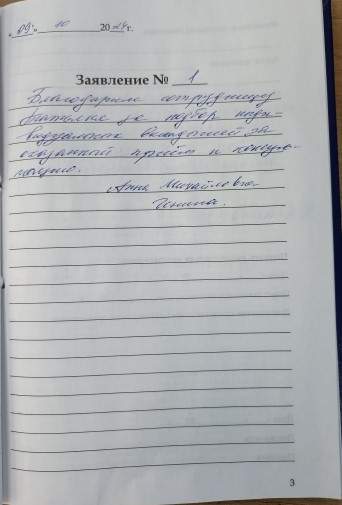 «09» 10 2024 г.
Заявление № 1
Благодарим сотрудницу
за подбор инди-
видуальных вкладышей, за
оказанный приём и консуль-
тацию.
Анна Михайловна
3